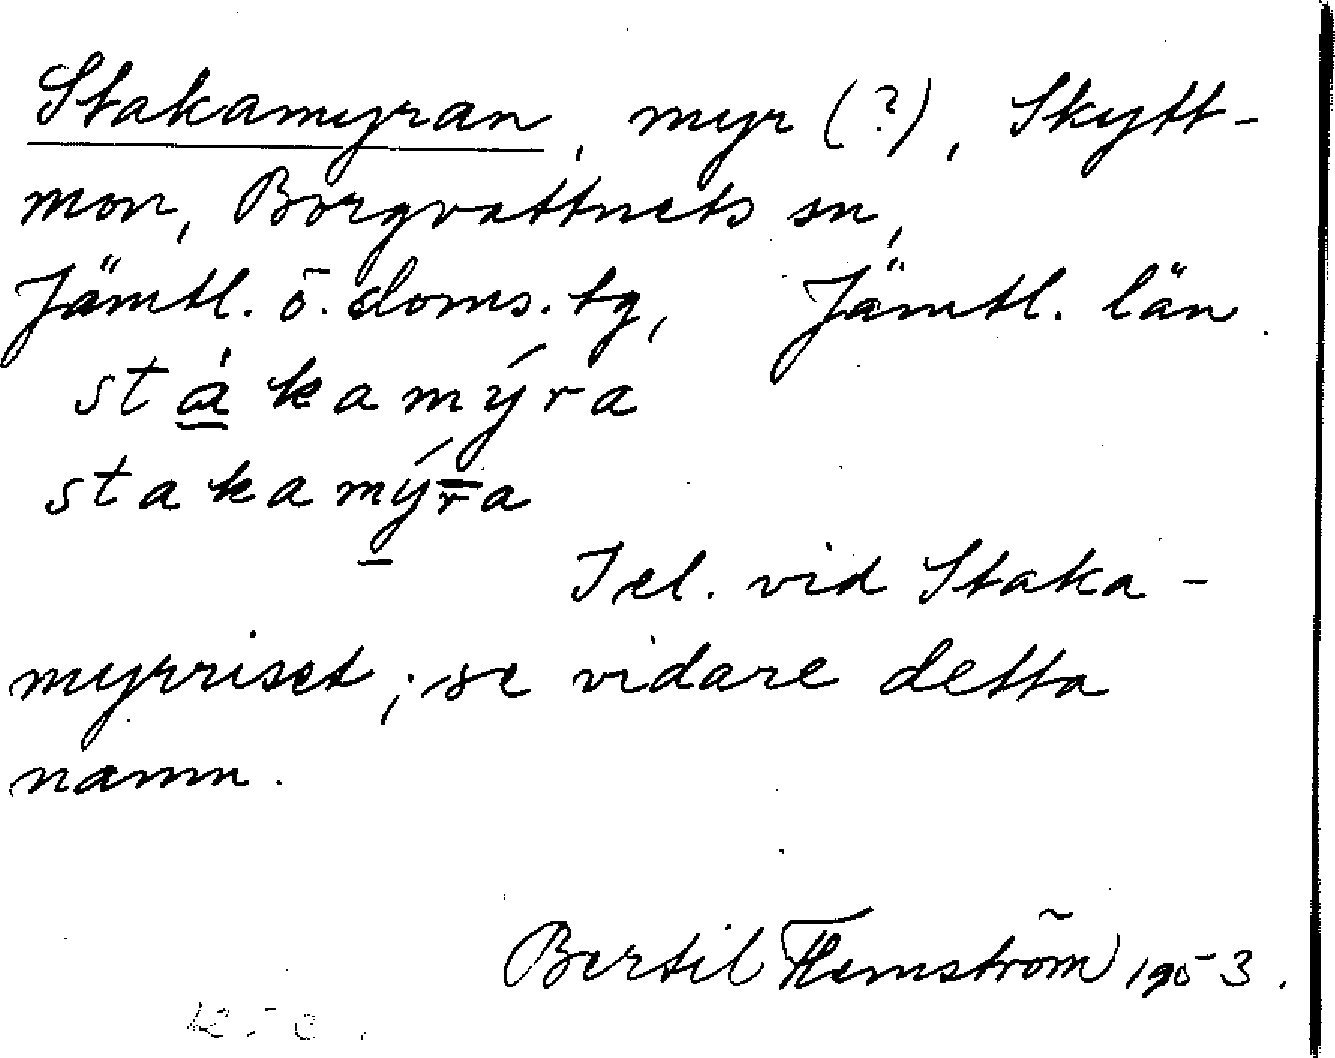 Stakamyran, myr (?), Skytt-
mon, Borgvattnets sn,
Jämtl. ö. doms. tg, Jämtl. län.
stákamýra
stakamýra
Jel. vid Staka-
myrriset; se vidare detta
namn.
Bertil Flemström 1953.